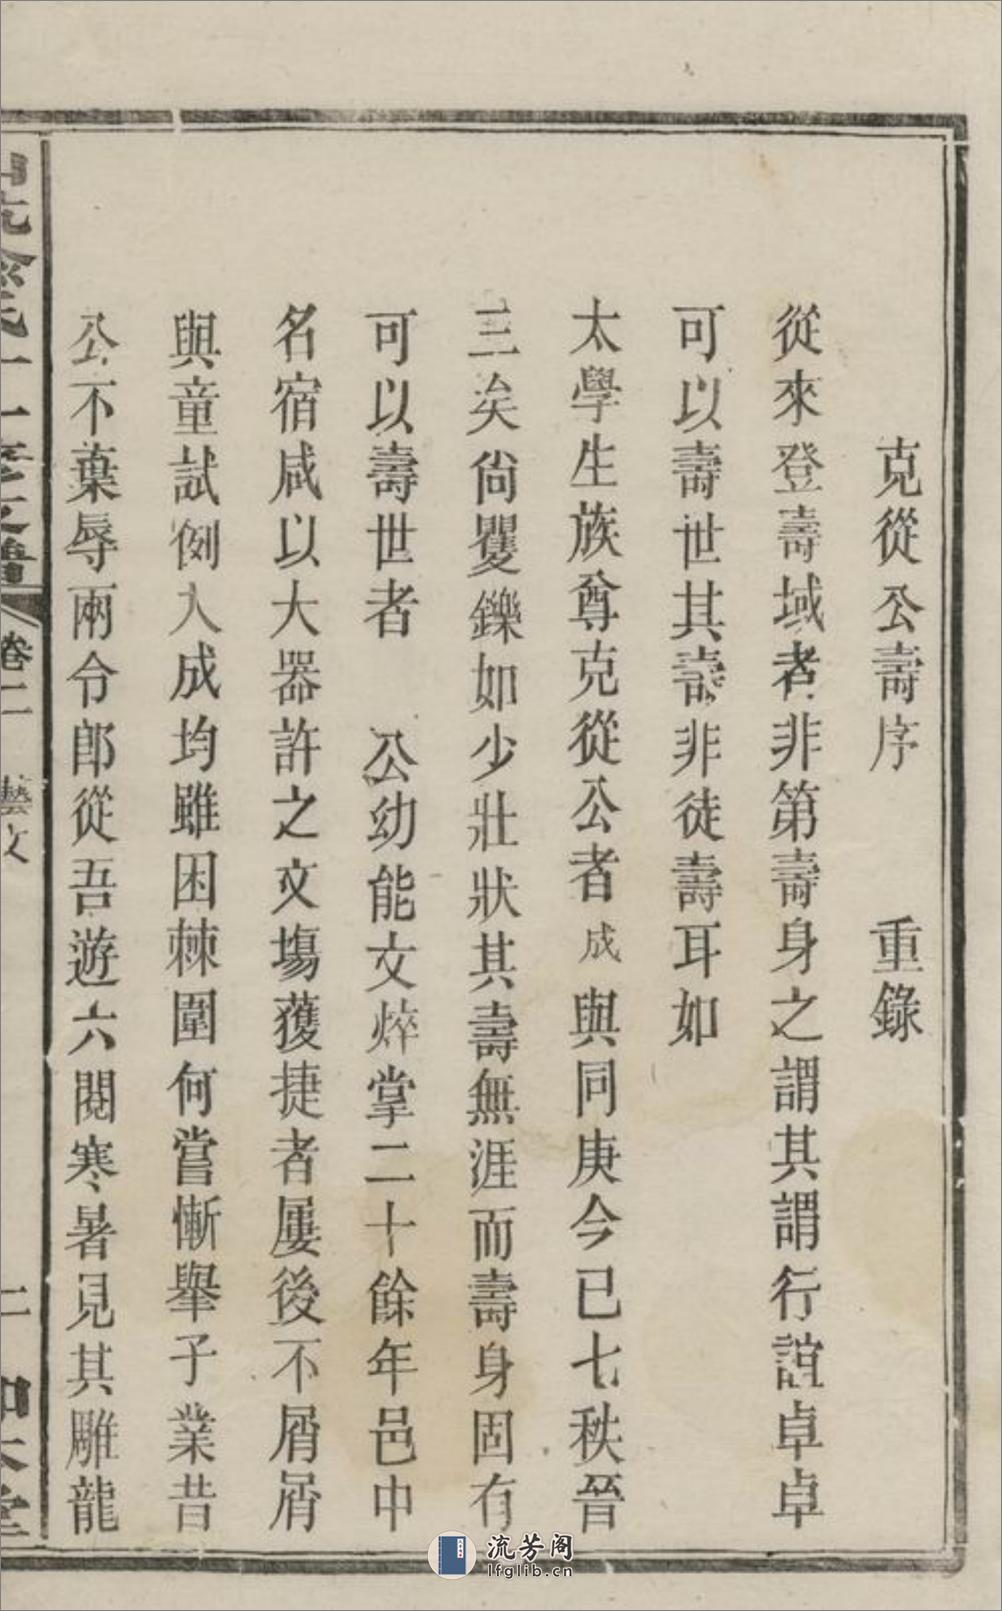 克從公壽序 重錄
從來登壽域者非第壽身之謂其謂行誼卓卓
可以壽世其壽非徒壽耳如
太學生族尊克從公者成與同庚今已七秩晉
三矣尙矍鑠如少壯狀其壽無涯而壽身固有
可以壽世者 公幼能文焠掌二十餘年邑中
名宿咸以大器許之文塲獲捷者屢後不屑屑
與童試例入成均雖困棘圍何嘗慚舉子業昔
公不葉辱兩令郎從吾遊六閱寒暑見其雕龍
卷二
藝文
二
流芳阁
lfglib.cn